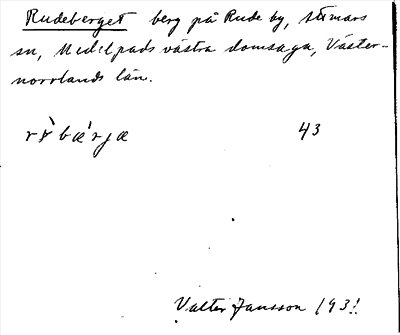 Rudeberget berg på Rude by, Stmars
sn, Medelpads västra domsaga, Väster-
norrlands län.
bærjæ 43
Valter Jansson 193!